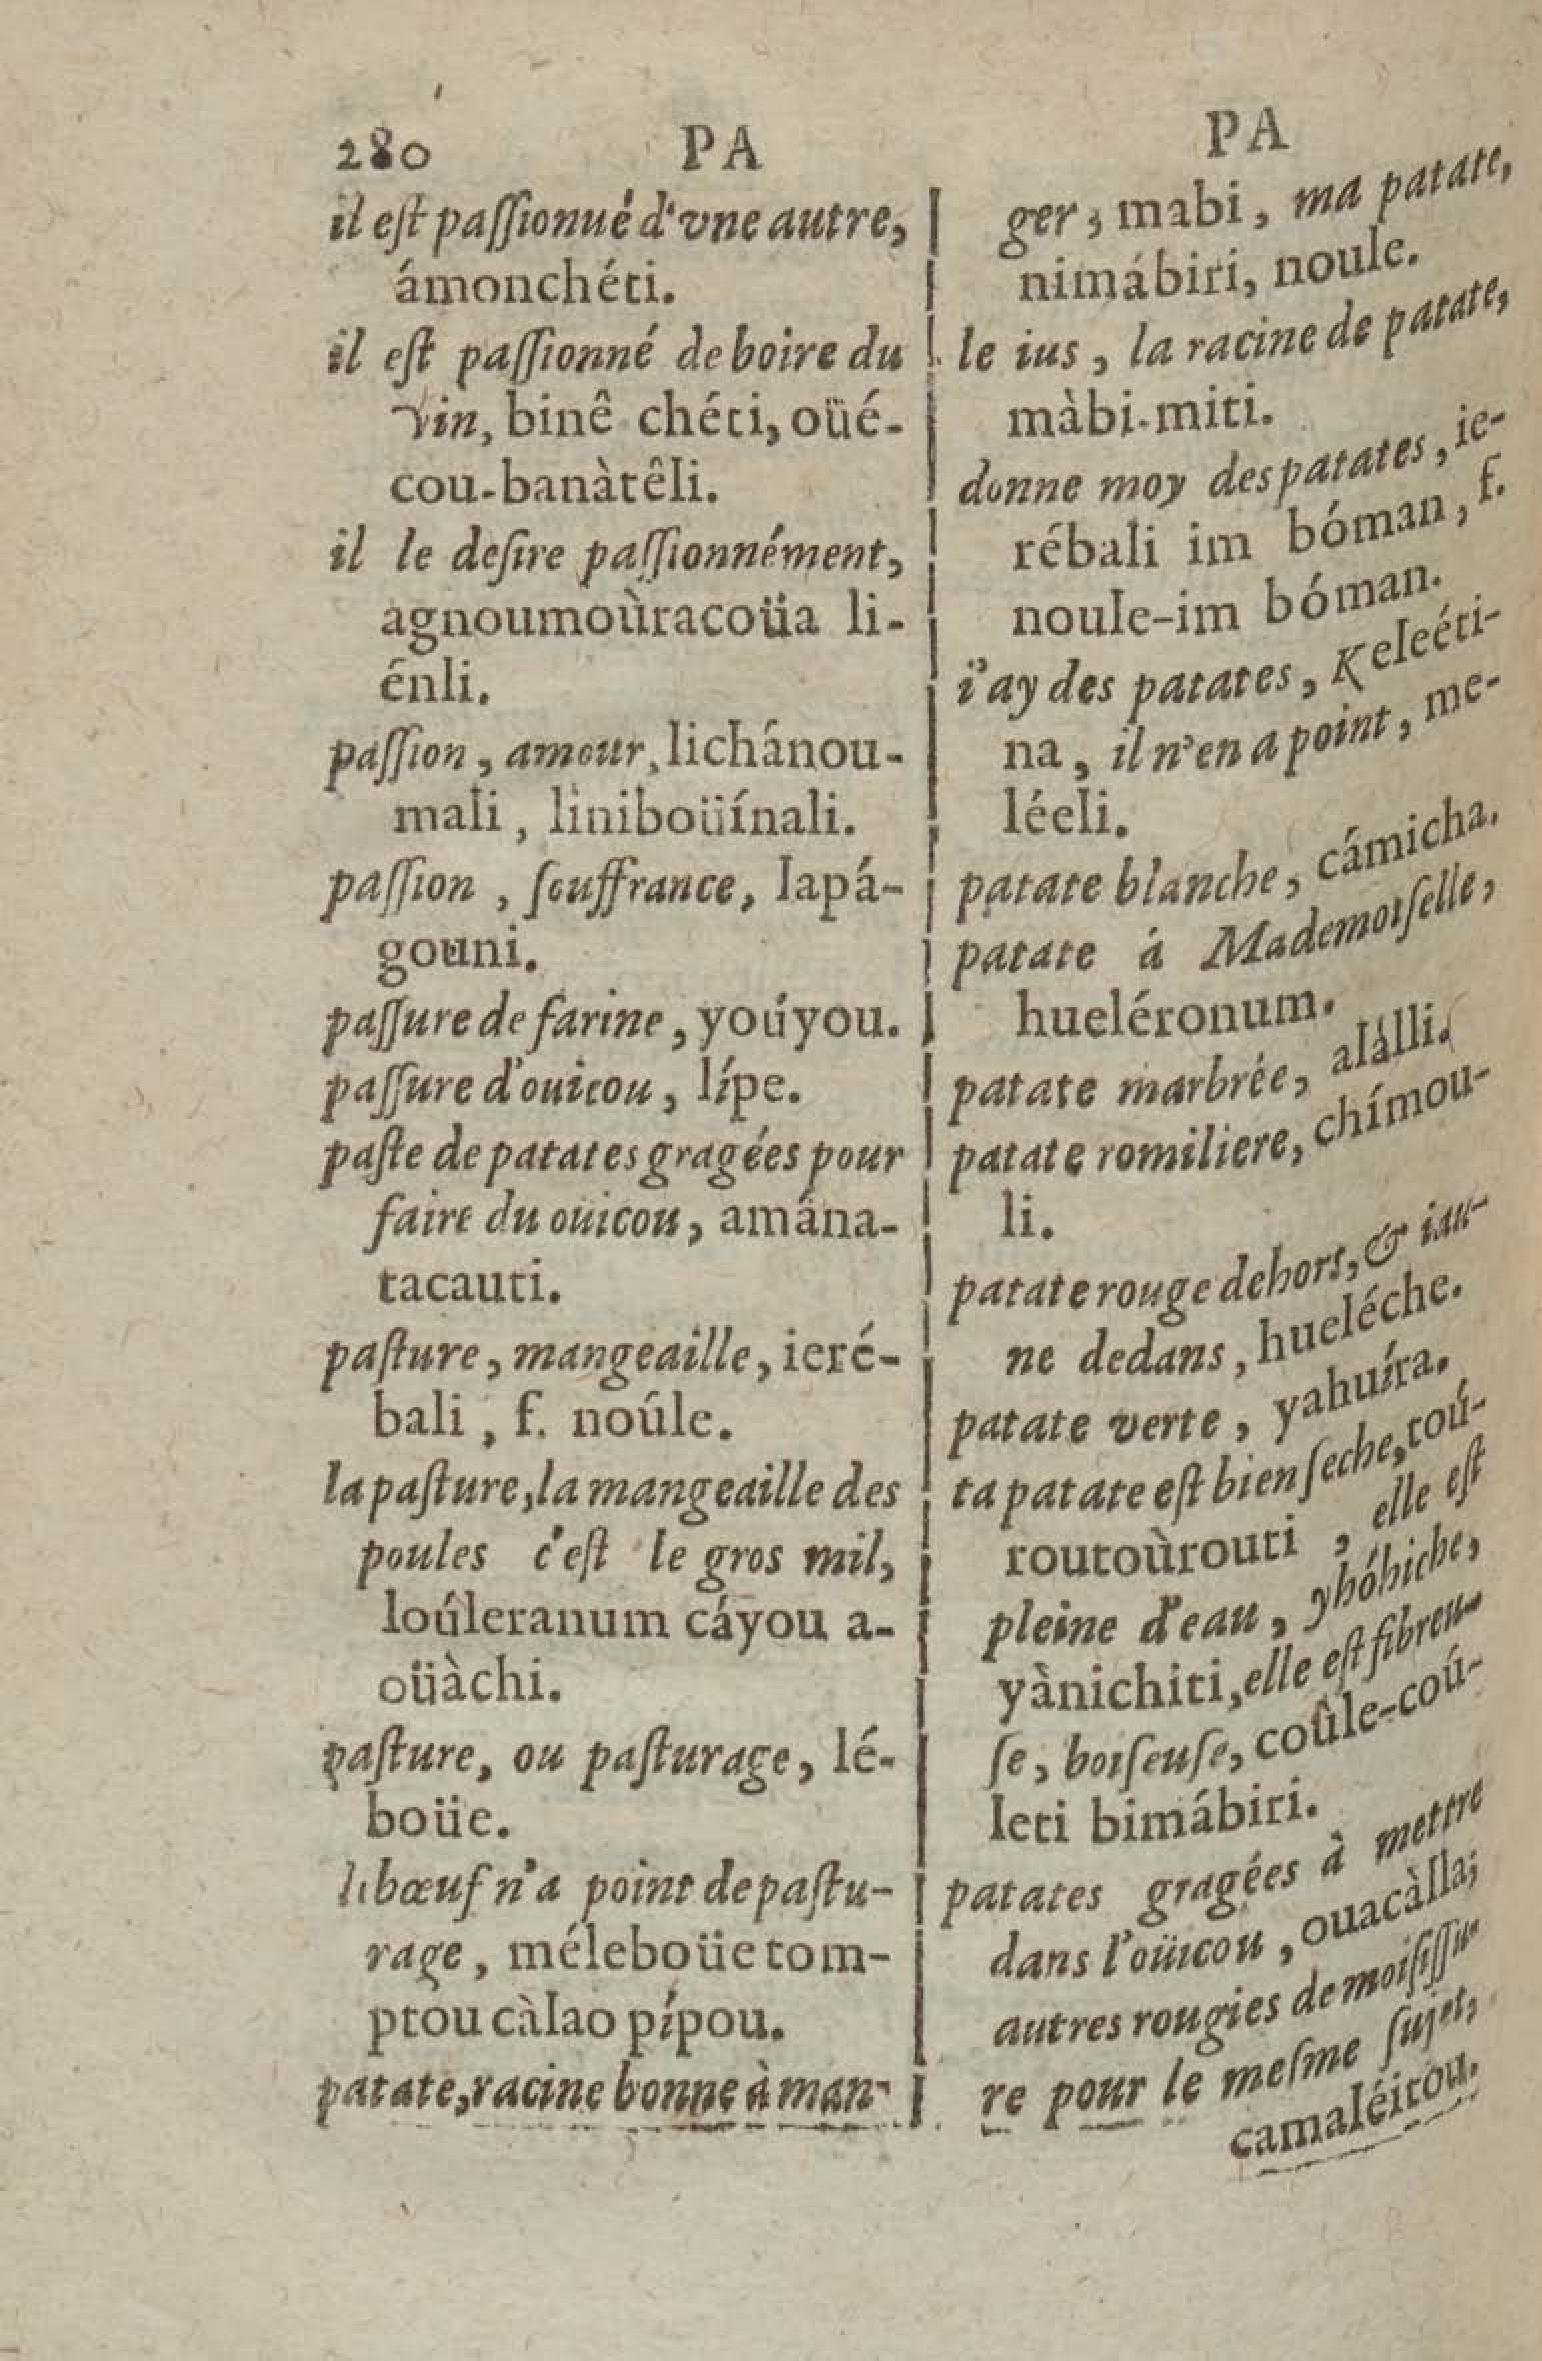 280 PA
il eſt paſſionué d'vne autre,
ámonchéti.
il eſt paſſionné de boire du
vin, binê chéti, oüé-
cou-banàtêli.
il le deſire paſſionnément,
agnoumoùracoüa li-
ênli.
paſſion, amour, lichánou-
mali, liniboüínali.
paſſion, ſouffrance, lapá-
gouni.
paſſure de farine, yoúyou.
paſſure d'ouicou, lípe.
paſte de patates gragées pour
faire du ouicou, amána-
tacauti.
paſture, mangeaille, ieré-
bali, f. noúle.
la paſture, la mangeaille des
poules c'eſt le gros mil,
loúleranum cáyou a-
oüàchi.
paſture, ou paſturage, lé-
boüe.
le bœuf n'a point de paſtu-
rage, méleboüe tom-
ptou càlao pípou.
patate, racine bonne à man-
PA
ger; mabi, ma patate,
nimábiri, noule.
le ius, la racine de patate,
màbi-miti.
donne moy des patates, ie-
rébali im bóman, f.
noule-im bóman.
i'ay des patates, Keleéti-
na, il n'en a point, me-
léeli.
patate blanche, cámicha.
patate á Mademoiſelle,
hueléronum.
patate marbrée, alálli.
patate romiliere, chímou-
li.
patate rouge dehors, & iau-
ne dedans, hueléche.
patate verte, yahuíra.
ta patate eſt bien ſeche, toú-
routoùrouti, elle eſt
pleine d'eau, yhóhiche,
yànichiti, elle eſt fibreu-
ſe, boiſeuſe, coûle-coú-
leti bimábiri.
patates gragées à mettre
dans l'oüicou, ouacàlla;
autres rougies de moiſiſſu-
re pour le meſme ſujet,
camaléitou.